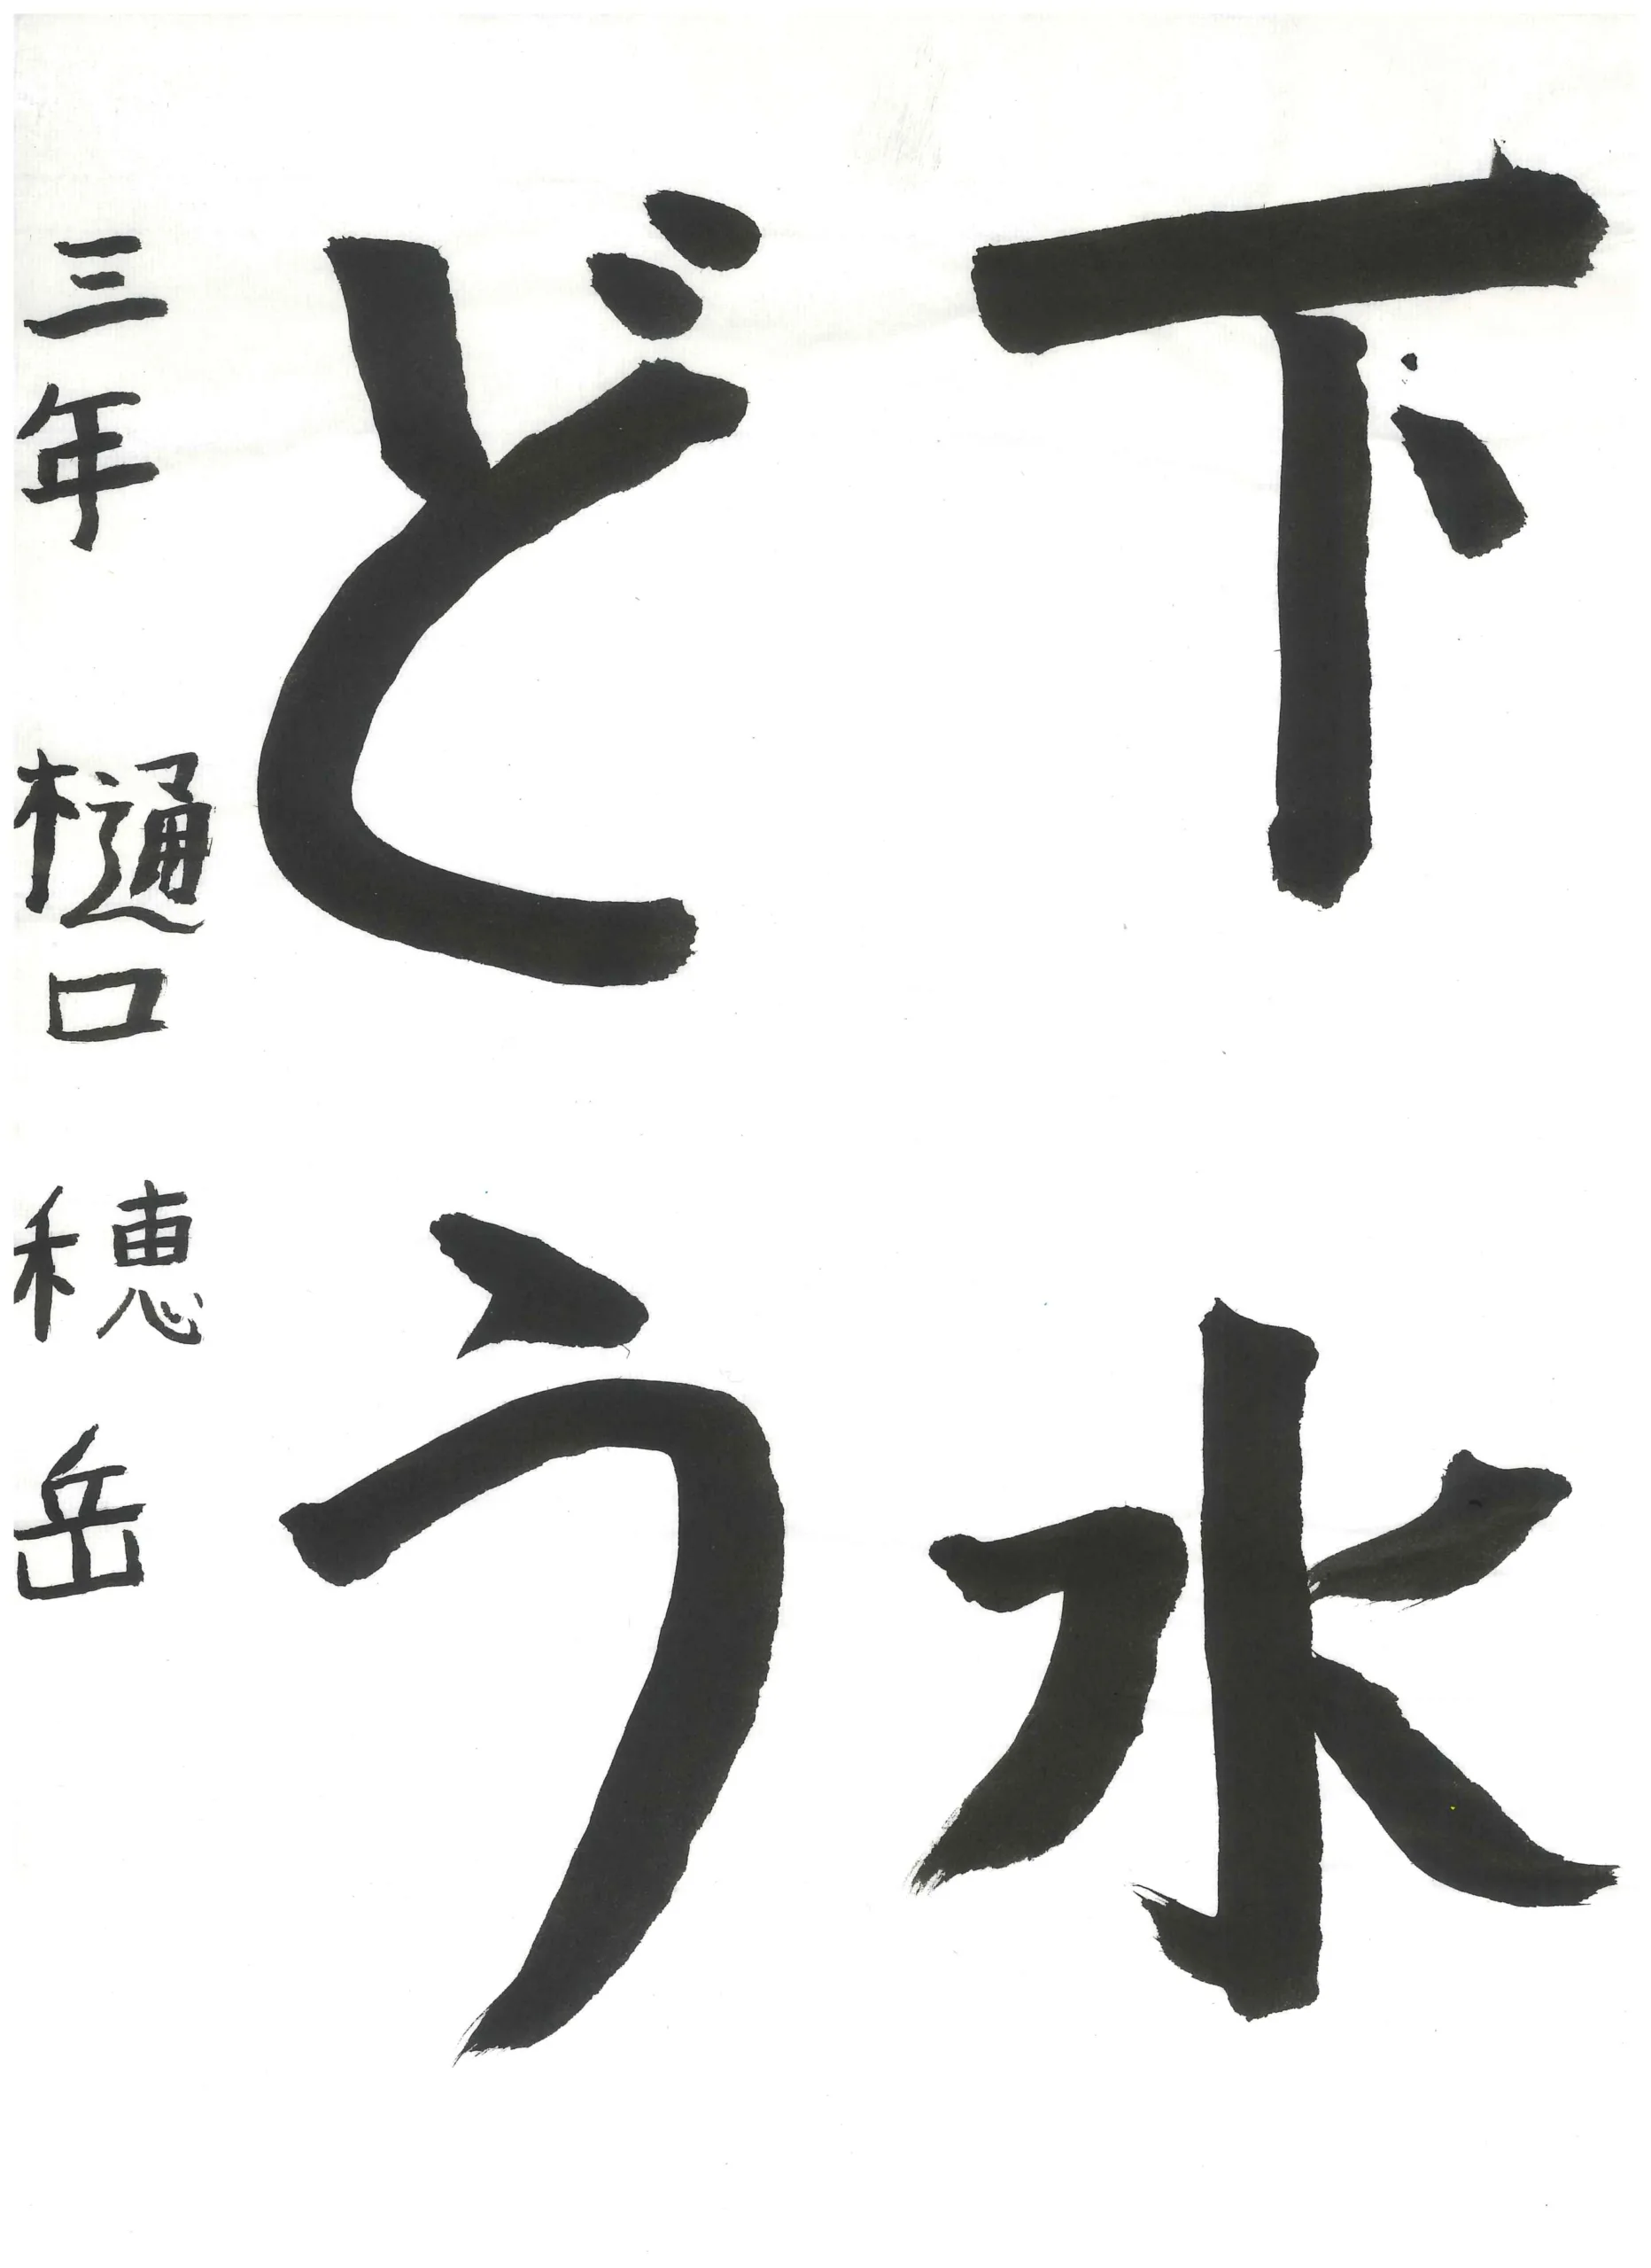 下水
どう
三年 樋口 穂岳